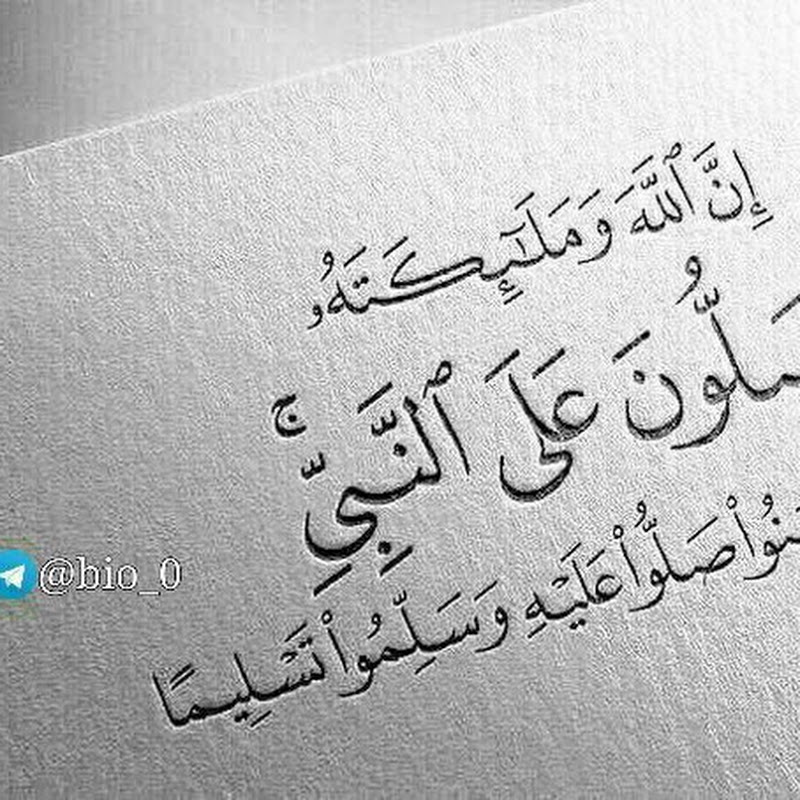 إِنَّ ٱللَّهَ وَمَلَٰٓئِكَتَهُۥ
صَلُّونَ عَلَى ٱلنَّبِيِّۚ
صَلُّوا۟ عَلَيْهِ وَسَلِّمُوا۟ تَسْلِيمًا
@bio_0